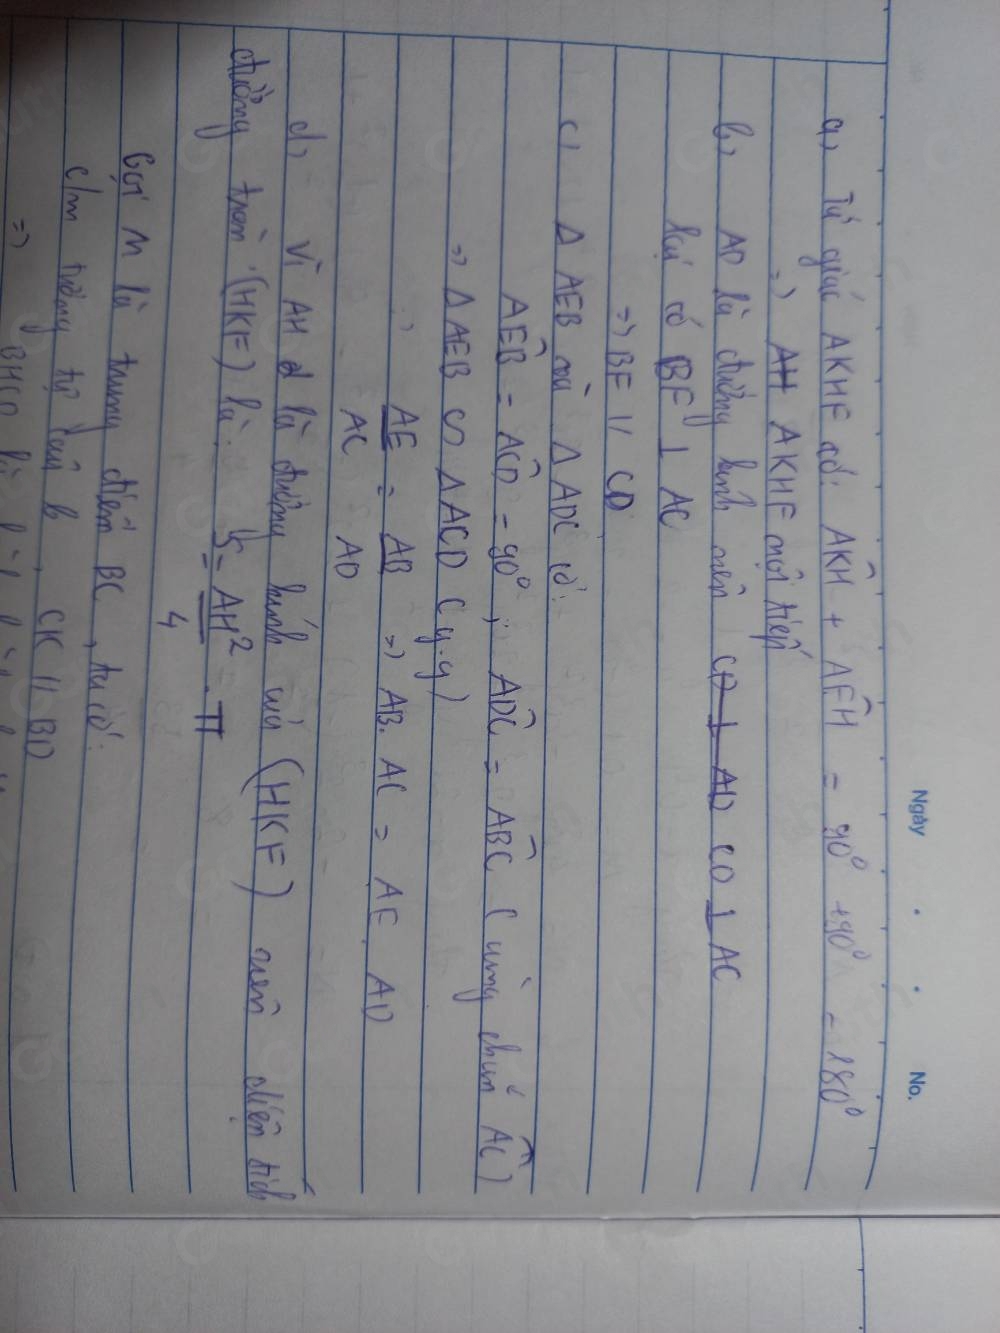 Ngày . . No.
a, Tứ giác AKHF có: AKH + AFH = 90° + 90° = 180°
=> AKHF nội tiếp
b, AD là đường kính nên CD ⊥ AD CD ⊥ AC
lại có BF ⊥ AC
=> BF // CD
c, Δ AEB và Δ ADC có:
AEB = ACD = 90°, ADC = ABC (cùng chắn AC)
=> Δ AEB ∽ Δ ACD (g.g)
=> AE/AC = AB/AD => AB. AC = AE. AD
d, Vì AH là đường kính của (HKF) nên diện tích
đường tròn (HKF) là: S = AH²/4 . π
Gọi M là trung điểm BC, ta có:
c/m tương tự câu b, CK // BD
=> BHCD là